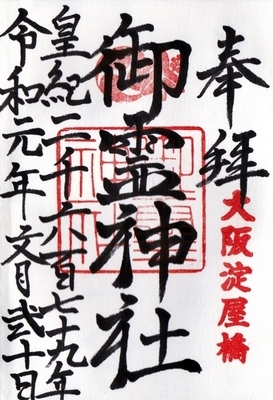 奉拝
大阪淀屋橋
御霊神社
皇紀二千六百七十九年
令和元年文月弐十日